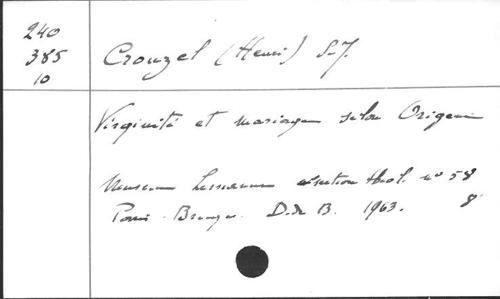 240
385
10
Crouzel (Henri) S.J.
Virginité et mariage selon Origène
Museum Lessianum section théol. n° 58
Paris - Bruges. D.d.B. 1963. 8°